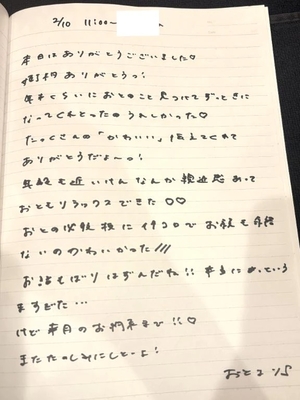 2/10 11:00〜
本日はありがとうございました♡
ありがとうっ!
年末くらいにおとのこと見つけてずっと気に
なってくれとったのうれしかった♡
たっくさんの「かわいい」伝えてくれて
ありがとうだよ〜っ!
年齢も近いけんなんか親近感あって
おともリラックスできた♡♡
おとの必殺技にイチコロでお顔も余裕
ないのかわいかった///
お話もばりはずんだね!! 本当にあっという
ますぎた…
けど来月のお約束まで!!♡
またたのしみにしとーよ!
おとより